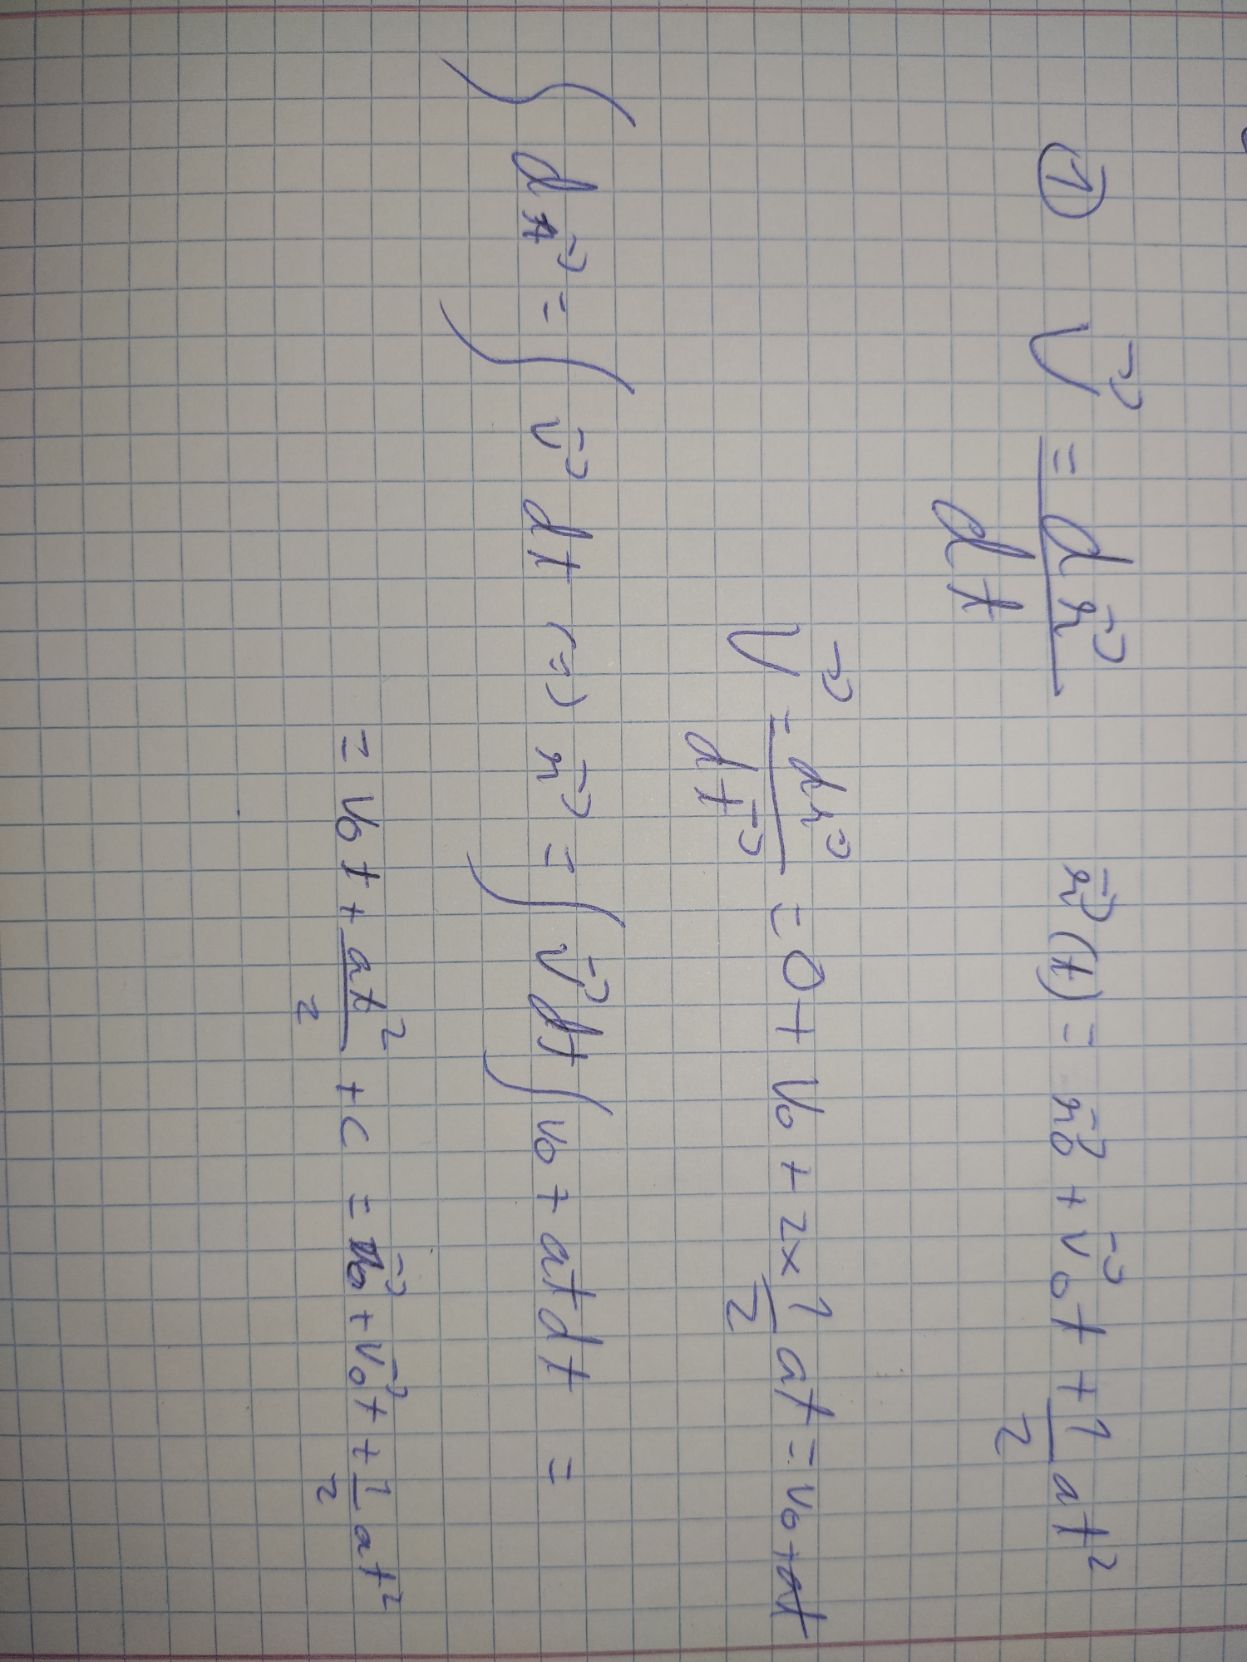 ① \vec{V} = \frac{d\vec{r}}{dt} \vec{r}(t) = \vec{r_0} + \vec{v}_0 t + \frac{1}{2} at^2
\vec{V} = \frac{d\vec{r}}{d\vec{t}} = 0 + V_0 + 2 × \frac{1}{2} at = v_0 + at
\int d\vec{r} = \int \vec{v} dt (=) \vec{r} = \int \vec{v} dt \int v_0 + at dt =
= v_0 t + \frac{at^2}{2} + c = \vec{r_0} + \vec{v_0} t + \frac{1}{2} at^2